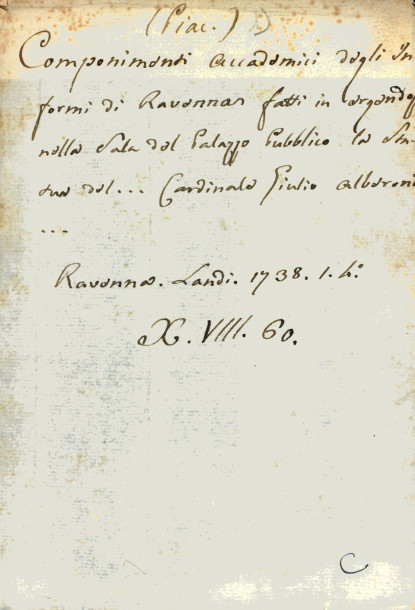 (Piac.)
Componimenti accademici degli In-
formi di Ravenna fatti in ergendosi
nella Sala del Palazzo Pubblico la Sta-
tua del... Cardinale Giulio Alberoni
...
Ravenna. Landi. 1738. 1. h°
X. VIII. 60.
C